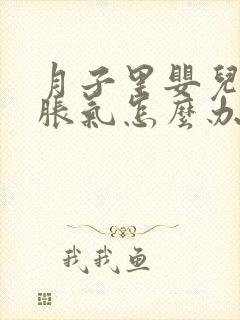 月子里嬰兒
脹氣怎麼办
我我鱼